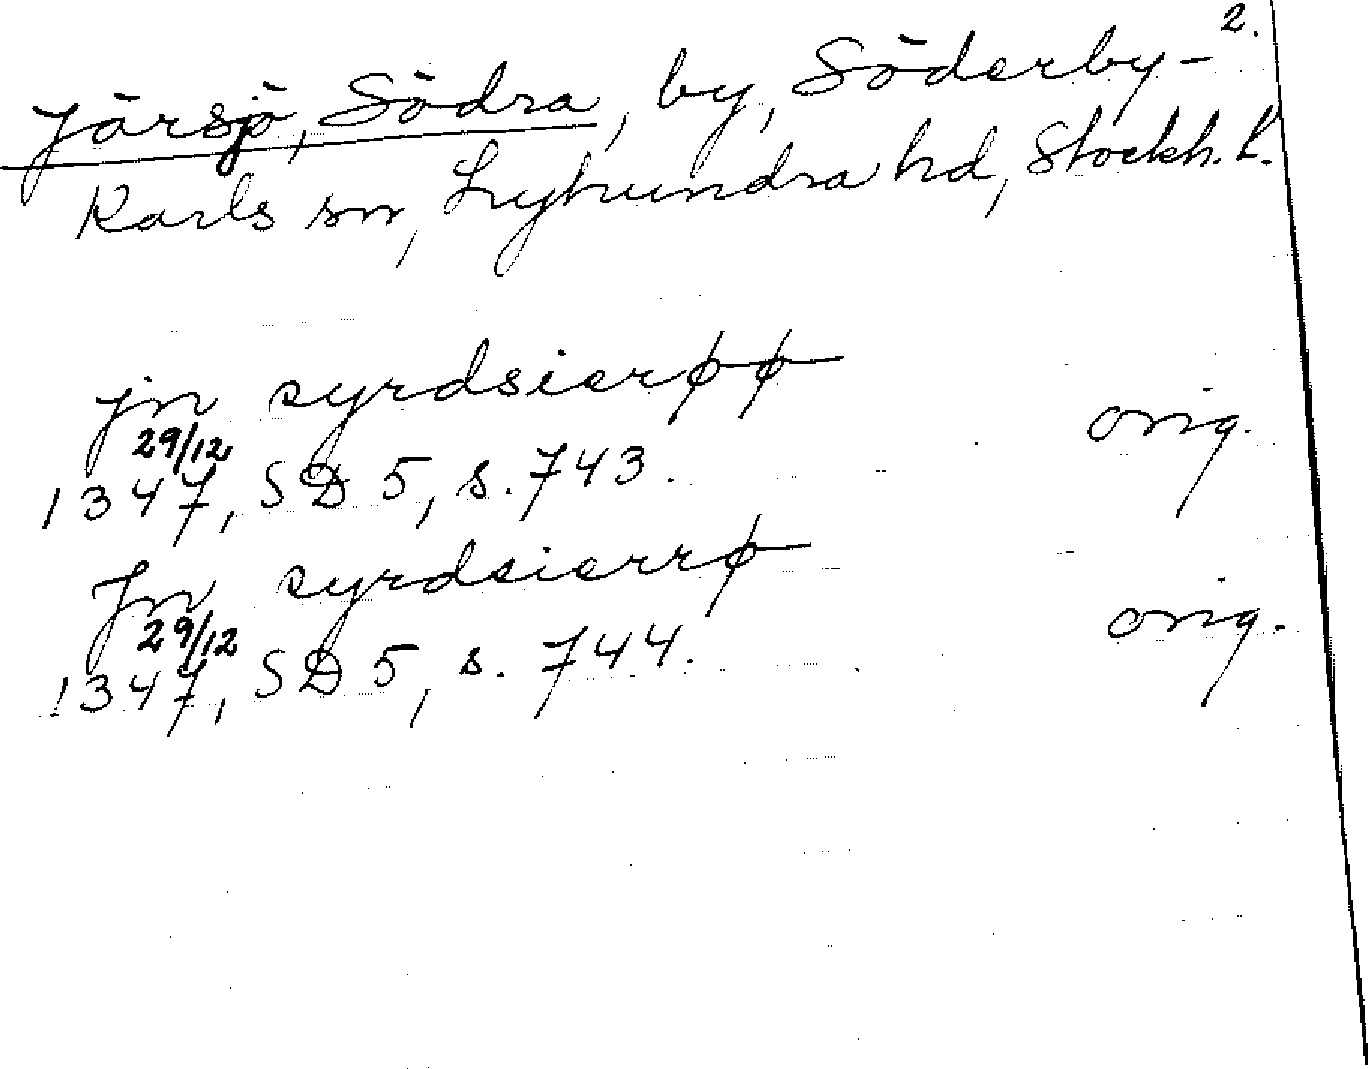 2.
Järsjö, Södra, by, Söderby-
Karls sn, Lyhundra hd, Stockh. l.
jn syrdsierøø
orig.
29/12
1347, SD 5, s. 743.
Jn syrdsierrø
orig.
29/12
1347, SD 5, s. 744.